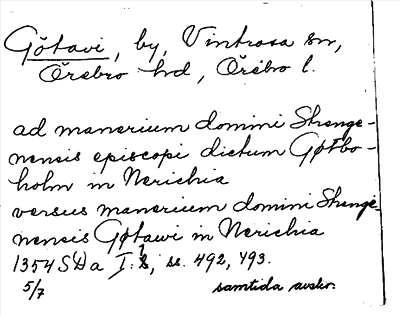 Götavi, by, Vintrosa sn,
Örebro hd, Örebro l.
ad manerium domini Strenge-
nensis episcopi dictum Gøtbo-
holm in Nerichia
versus manerium domini Strenge-
nensis Gøtawi in Nerichia
1354 5/7 SDa I:1, ss. 492, 493.
samtida avskr.